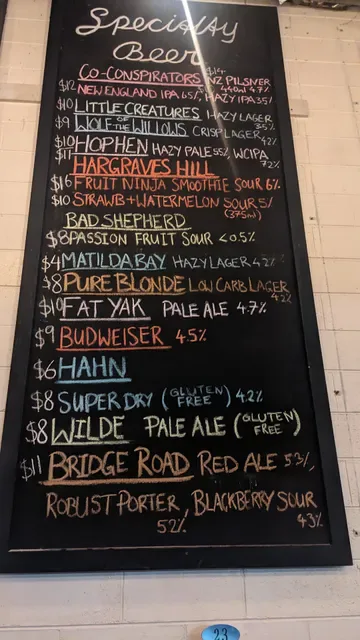 Specialty
Beer
CO-CONSPIRATORS $14 NZ PILSNER
440ml 4.7%
$12 NEW ENGLAND IPA 6.5%, HAZY IPA 3.5%
$10 LITTLE CREATURES HAZY LAGER
3.5%
$9 WOLF OF THE WILLOWS CRISP LAGER
4.2%
$10 HOPHEN HAZY PALE 5.5%, WCIPA
$11 7.2%
HARGRAVES HILL
$16 FRUIT NINJA SMOOTHIE SOUR 6%
$10 STRAWB + WATERMELON SOUR 5%
(375ml)
BAD SHEPHERD
$8 PASSION FRUIT SOUR <0.5%
$4 MATILDA BAY HAZY LAGER 4.2%
$8 PURE BLONDE LOW CARB LAGER
4.2%
$10 FAT YAK PALE ALE 4.7%
$9 BUDWEISER 4.5%
$6 HAHN
$8 SUPER DRY (GLUTEN FREE) 4.2%
$8 WILDE PALE ALE (GLUTEN FREE)
$11 BRIDGE ROAD RED ALE 5.3%,
ROBUST PORTER, BLACKBERRY SOUR
5.2% 4.3%
23